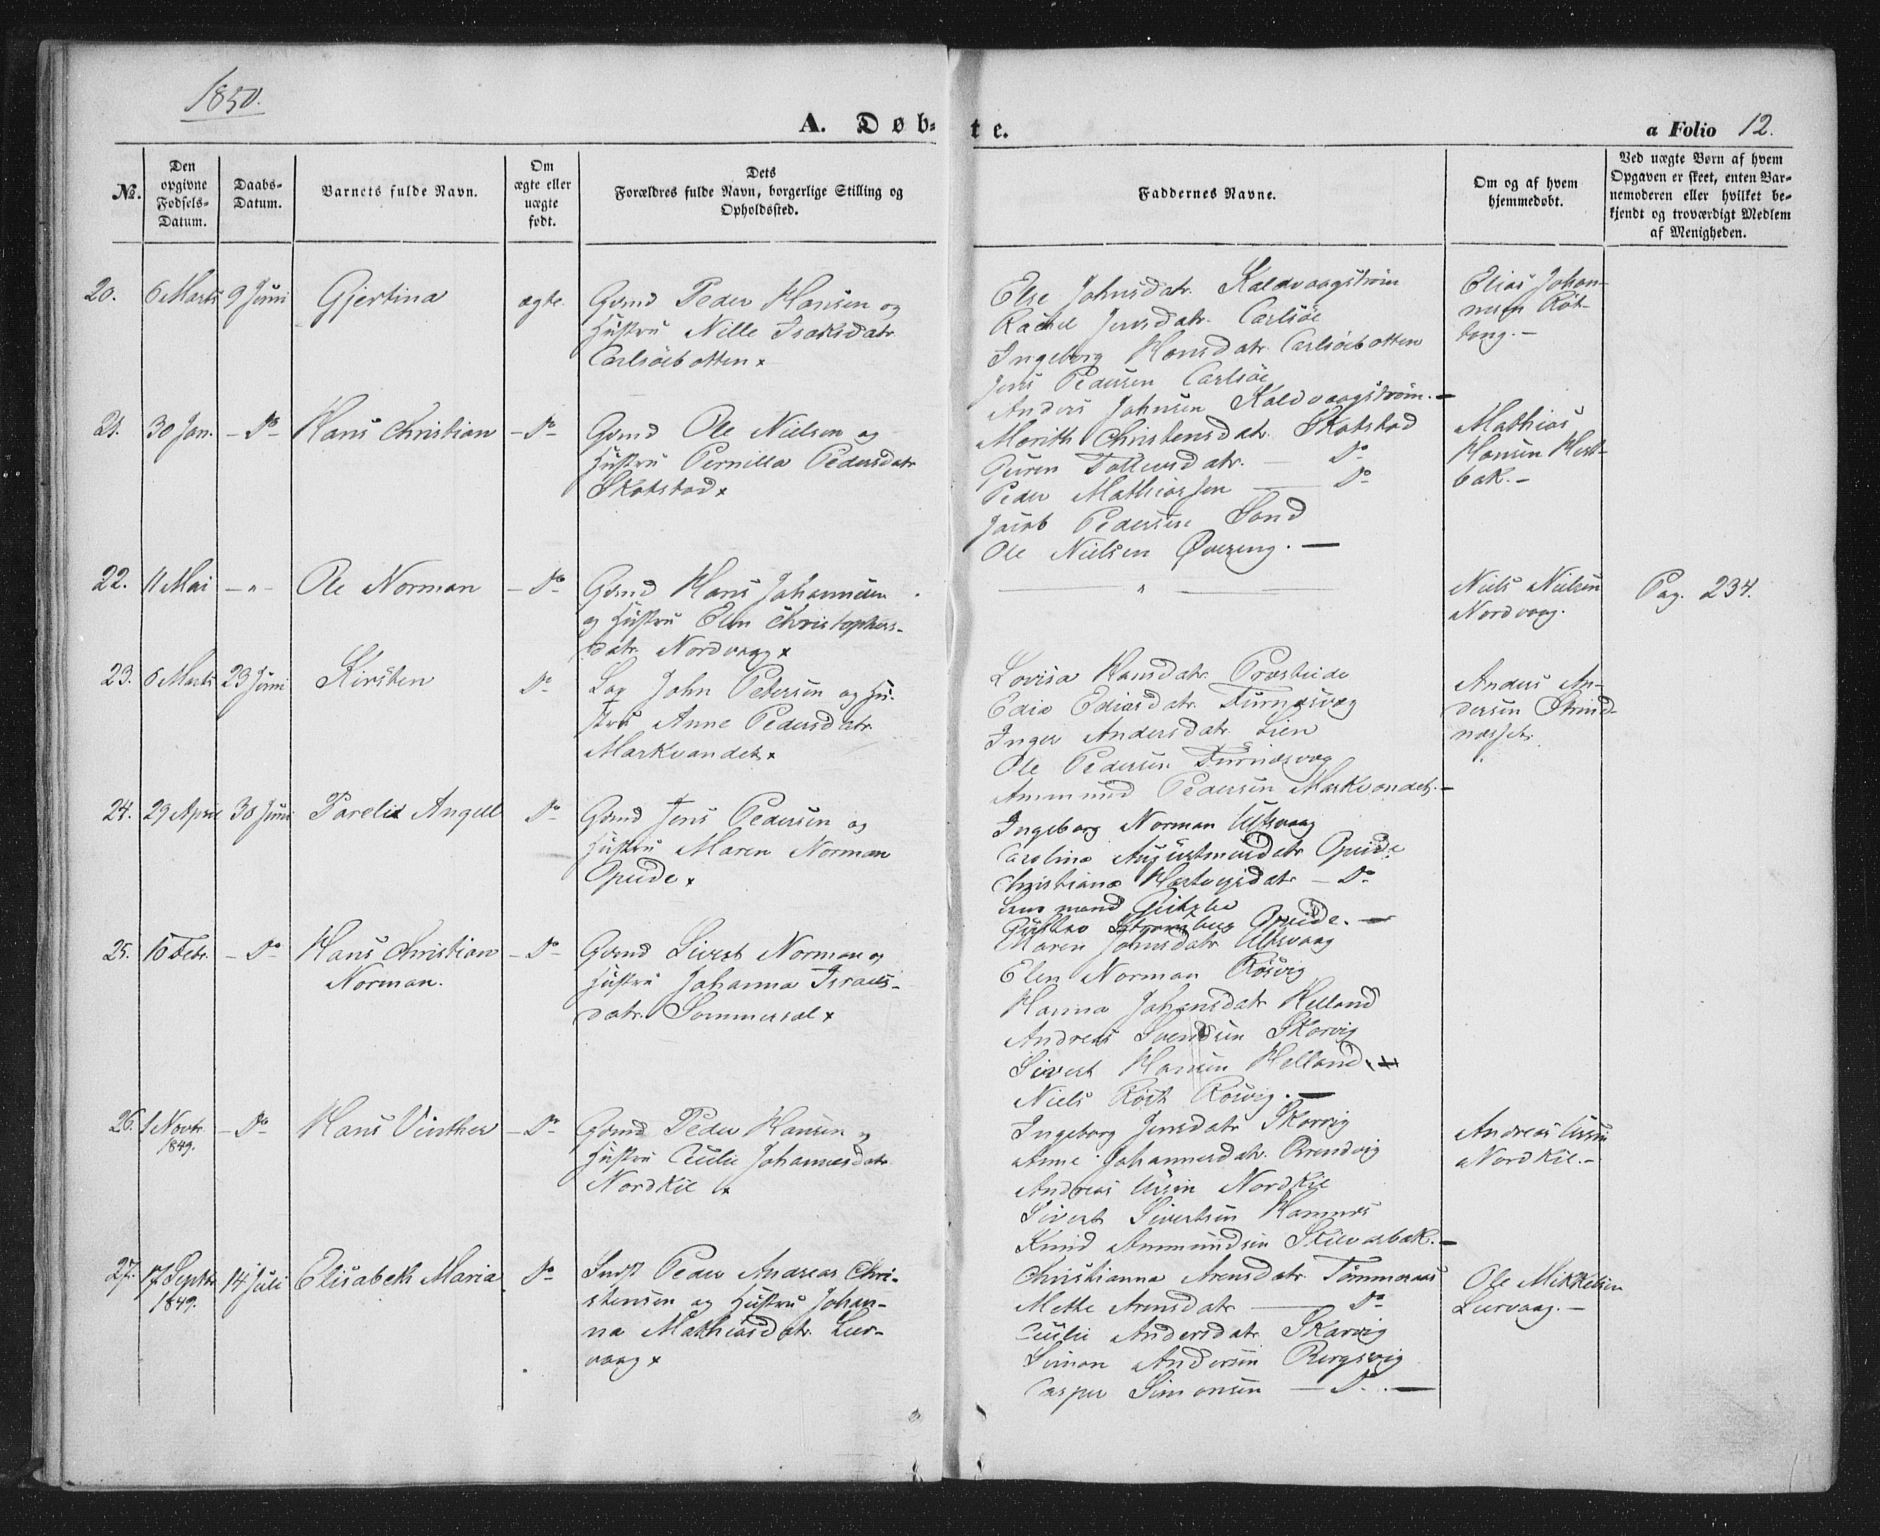 1850.
A. Døb-
te.
a Folio 12.
No.
Den opgivne Fødsels-Datum.
Daabs-Datum.
Barnets fulde Navn.
Om ægte eller uægte født.
Dets Forældres fulde Navn, borgerlige Stilling og Opholdssted.
Faddernes Navne.
Om og af hvem hjemmedøbt.
Ved uægte Børn af hvem Opgaven er skeet, enten Barnemoderen eller hvilket bekjendt og troværdigt Medlem af Menigheden.
20. 6 Marts 9 Juni Gjertina ægte. Gsmd Peder Hansen og
Hustru Nille Isaksdatr
Carlsöebotten x
Else Johnsdatr. Kaldvaagstrøm
Rachel Jensdatr. Carlsöe
Ingeborg Hansdatr. Carlsöebotten
Jens Pedersen Carlsöe
Anders Johnsen Kaldvaagstrøm. —
Elias Johan-
nesen Röt-
tang. —
21. 30 Jan. — Do Hans Christian — Do — Gsmd Ole Nielsen og
Hustru Pernilla Pedersdatr
Skotstad x
Marith Christensdatr. Skotstad
Guren Tollevsdatr. — Do
Peder Mathiassen — Do
Jacob Pedersen Sand
Ole Nielsen Øvereng. —
Mathias
Hansen Hest-
bak. —
22. 11 Mai — " — Ole Norman — Do — Gsmd Hans Johannesen
og Hustru Elen Christophers-
datr. Nordvaag x
— " —
Niels Nielsen
Nordvaag.
Pag. 234.
23. 6 Marts 23 Juni Kirsten Do Lap John Pedersen og Hu-
stru Anne Pedersdatr
Markvandet x
Lovisa Hansdatr. Præsteide
Edis Ediasdatr. Furnæsvæg
Inger Andersdatr. Lien
Ole Pedersen Furnæsvæg
Ammund Pedersen Markvandet. —
Anders An-
dersen Strind-
næsset.
24. 29 April 30 Juni Parelia Angell Do Gsmd Jens Pedersen og
Hustru Maren Norman
Opeide x
Ingeborg Norman Ulfsvaag
Carolina Augustinusdatr Opeide
Christiana Hartvigsdatr — Do
Lensmand
Opeide. —
25. 16 Febr. — Do Hans Christian
Norman. — Do — Gsmd Sivert Norman og
Hustru Johanna Israels-
datr. Sommersæl x
Maren Johnsdatr Ulfsvaag
Elen Norman Rösvig
Hanna Johansdatr Helland
Andreas Svendsen Skarvig
Sivert Hansen Helland. +
Niels Röst Rösvig. —
26. 1 Novbr. 1849. — Do — Hans Vinther — Do — Gsmd Peder Hansen og
Hustru Cecilie Johannesdatr
Nordkil x
Ingeborg Jensdatr Skarvig
Anne Johannesdatr. Brendvig
Andreas Ursin Nordkil
Sivert Sivertsen Hamnes
Knud Ammundsen Skilvasbak. —
Andreas Ursin
Nordkil. —
27. 17 Septbr 1849. 14 Juli Elisabeth Maria Do Indst Peder Andreas Chri-
stensen og Hustru Johan-
na Mathiasdatr. Leer-
vaag x
Christianna Arensdatr Tömmeraas
Mette Arensdatr — Do
Cecilie Andersdatr. Skarvig
Simon Andersen Bergsvig
Casper Simonsen — Do. —
Ole Mikkelsen
Leervaag. —